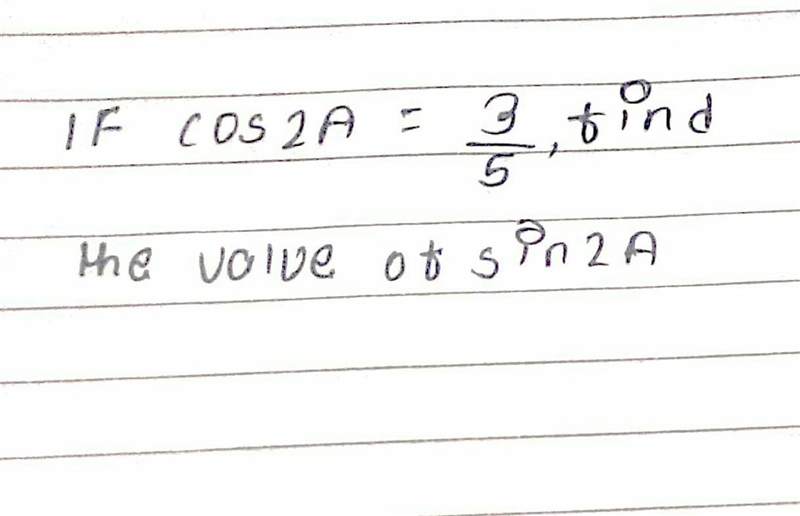 IF cos2A = 3/5, find
the value of sin2A